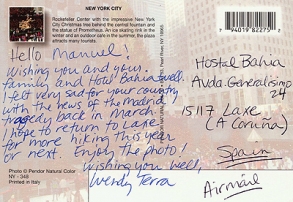 NEW YORK CITY
Rockefeller Center with the impressive New York
City Christmas tree behind the central fountain and
statue of Prometheus. An ice skating rink in the
winter and an outdoor cafe in the summer, the plaza
attracts many tourists.
Hello Manuel!
Wishing you and your
family and Hotel Bahia well.
I felt very sad for your country
with the news of the Madrid
tragedy back in March.
I hope to return to Laxe
for more hiking this year
or next. Enjoy the photo!
Wishing you well,
Wendy Terra
Photo © Pendor Natural Color
NY - 348
Printed in Italy
7 94019 82275 2
Hostal Bahia
Avda. Generalisimo
24
15117 Laxe
(A Coruña)
Spain
Airmail